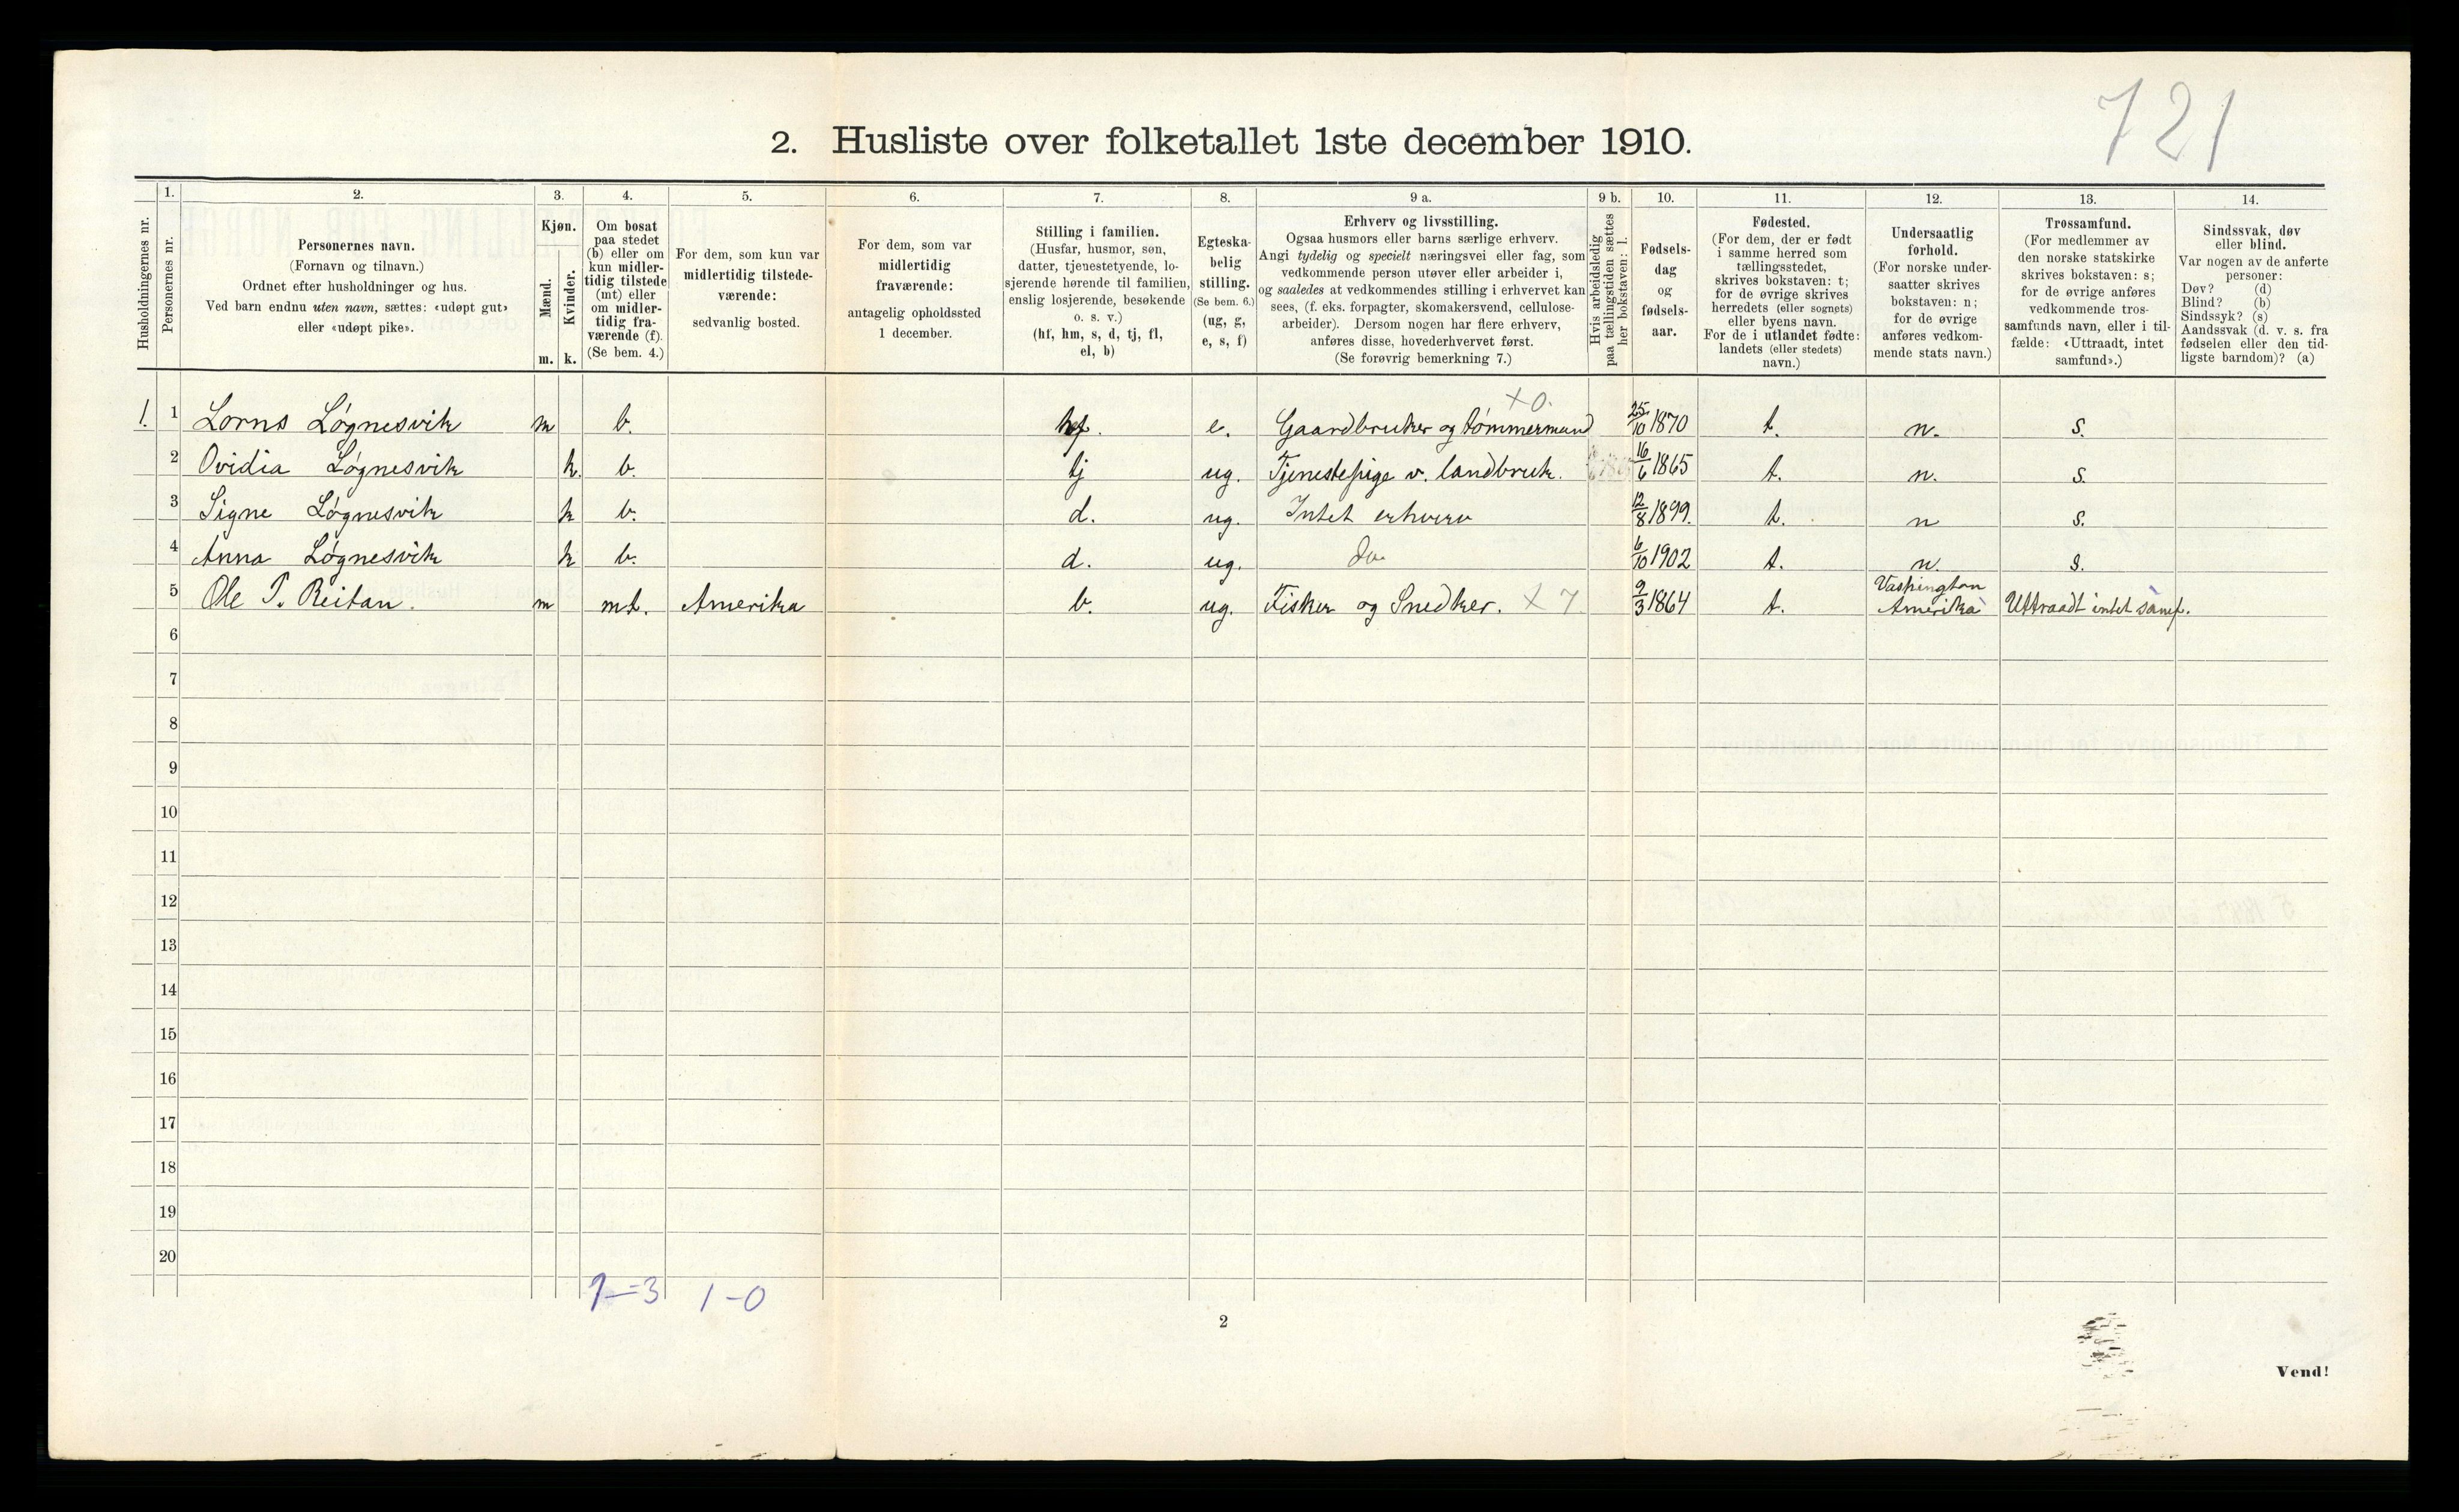 721
2. Husliste over folketallet 1ste december 1910.
Husholdningernes nr.
1.
Personernes nr.
2.
Personernes navn.
(Fornavn og tilnavn.)
Ordnet efter husholdninger og hus.
Ved barn endnu uten navn, sættes: «udøpt gut»
eller «udøpt pike».
3.
Kjøn.
Mænd.
Kvinder.
m. k.
4.
Om bosat
paa stedet
(b) eller om
kun midler-
tidig tilstede
(mt) eller
om midler-
tidig fra-
værende (f).
(Se bem. 4.)
5.
For dem, som kun var
midlertidig tilstede-
værende:
sedvanlig bosted.
6.
For dem, som var
midlertidig
fraværende:
antagelig opholdssted
1 december.
7.
Stilling i familien.
(Husfar, husmor, søn,
datter, tjenestetyende, lo-
sjerende hørende til familien,
enslig losjerende, besøkende
o. s. v.)
(hf, hm, s, d, tj, fl,
el, b)
8.
Egteska-
belig
stilling.
(Se bem. 6.)
(ug, g,
e, s, f)
9 a.
Erhverv og livsstilling.
Ogsaa husmors eller barns særlige erhverv.
Angi tydelig og specielt næringsvei eller fag, som
vedkommende person utøver eller arbeider i,
og saaledes at vedkommendes stilling i erhvervet kan
sees, (f. eks. forpagter, skomakersvend, cellulose-
arbeider). Dersom nogen har flere erhverv,
anføres disse, hovederhvervet først.
(Se forøvrig bemerkning 7.)
9 b.
Hvis arbeidsledig
paa tællingstiden sættes
her bokstaven: l.
10.
Fødsels-
dag
og
fødsels-
aar.
11.
Fødested.
(For dem, der er født
i samme herred som
tællingsstedet,
skrives bokstaven: t;
for de øvrige skrives
herredets (eller sognets)
eller byens navn.
For de i utlandet fødte:
landets (eller stedets)
navn.)
12.
Undersaatlig
forhold.
(For norske under-
saatter skrives
bokstaven: n;
for de øvrige
anføres vedkom-
mende stats navn.)
13.
Trossamfund.
(For medlemmer av
den norske statskirke
skrives bokstaven: s;
for de øvrige anføres
vedkommende tros-
samfunds navn, eller i til-
fælde: «Uttraadt, intet
samfund».)
14.
Sindssvak, døv
eller blind.
Var nogen av de anførte
personer:
Døv? (d)
Blind? (b)
Sindssyk? (s)
Aandssvak (d. v. s. fra
fødselen eller den tid-
ligste barndom)? (a)
X 0.
1. 1 Lorns Løgnesvik m b. hf. e. Gaardbruker og tømmermand 25/10 1870 t. n. s.
2 Ovidia Løgnesvik k. b. tj ug. Tjenestepige v. landbruk. 16/6 1865 t. n. s.
3 Signe Løgnesvik k b. d. ug. Intet erhverv 12/8 1899. t. n s.
4 Anna Løgnesvik k b. d. ug. do. 6/10 1902 t. n. s.
5 Ole P. Reitan. m mt. Amerika b. ug. Fisker og Snedker. X 7 9/3 1864 t. Vashington Amerika Uttraadt intet samf.
6
7
8
9
10
11
12
13
14
15
16
17
18
19
20
1-3 1-0
2
Vend!